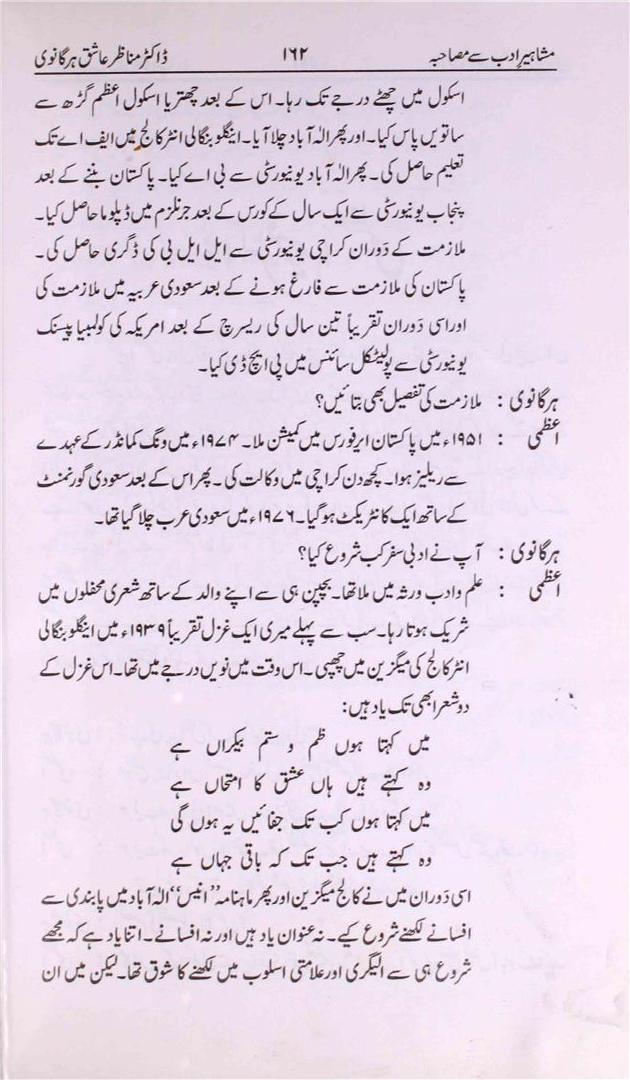 مشاہیر ادب سے مصاحبہ ۱۶۲ ڈاکٹر مناظر عاشق ہرگانوی
اسکول میں چھٹے درجے تک رہا۔ اس کے بعد چھتریا اسکول اعظم گڑھ سے
ساتویں پاس کیا۔ اور پھر الٰہ آباد چلا آیا۔ اینگلو بنگالی انٹر کالج میں ایف اے تک
تعلیم حاصل کی۔ پھر الٰہ آباد یونیورسٹی سے بی اے کیا۔ پاکستان بننے کے بعد
پنجاب یونیورسٹی سے ایک سال کے کورس کے بعد جرنلزم میں ڈپلوما حاصل کیا۔
ملازمت کے دَوران کراچی یونیورسٹی سے ایل ایل بی کی ڈگری حاصل کی۔
پاکستان کی ملازمت سے فارغ ہونے کے بعد سعودی عربیہ میں ملازمت کی
اور اسی دَوران تقریباً تین سال کی ریسرچ کے بعد امریکہ کی کولمبیا پیسنک
یونیورسٹی سے پولیٹکل سائنس میں پی ایچ ڈی کیا۔
ہرگانوی : ملازمت کی تفصیل بھی بتائیں؟
اعظمی : ۱۹۵۱ء میں پاکستان ایر فورس میں کمیشن ملا۔ ۱۹۷۴ء میں ونگ کمانڈر کے عہدے
سے ریلیز ہوا۔ کچھ دن کراچی میں وکالت کی۔ پھر اس کے بعد سعودی گورنمنٹ
کے ساتھ ایک کانٹریکٹ ہو گیا۔ ۱۹۷۶ء میں سعودی عرب چلا گیا تھا۔
ہرگانوی : آپ نے ادبی سفر کب شروع کیا؟
اعظمی : علم و ادب ورثہ میں ملا تھا۔ بچپن ہی سے اپنے والد کے ساتھ شعری محفلوں میں
شریک ہوتا رہا۔ سب سے پہلے میری ایک غزل تقریباً ۱۹۳۹ء میں اینگلو بنگالی
انٹر کالج کی میگزین میں چھپی۔ اس وقت میں نویں درجے میں تھا۔ اس غزل کے
دو شعر ابھی تک یاد ہیں:
میں کہتا ہوں ظلم و ستم بیکراں ہے
وہ کہتے ہیں ہاں عشق کا امتحاں ہے
میں کہتا ہوں کب تک جفائیں یہ ہوں گی
وہ کہتے ہیں جب تک کہ باقی جہاں ہے
اسی دَوران میں نے کالج میگزین اور پھر ماہنامہ ’’انیس‘‘ الٰہ آباد میں پابندی سے
افسانے لکھنے شروع کیے۔ نہ عنوان یاد ہیں اور نہ افسانے۔ اتنا یاد ہے کہ مجھے
شروع ہی سے الیگری اور علامتی اسلوب میں لکھنے کا شوق تھا۔ لیکن میں ان